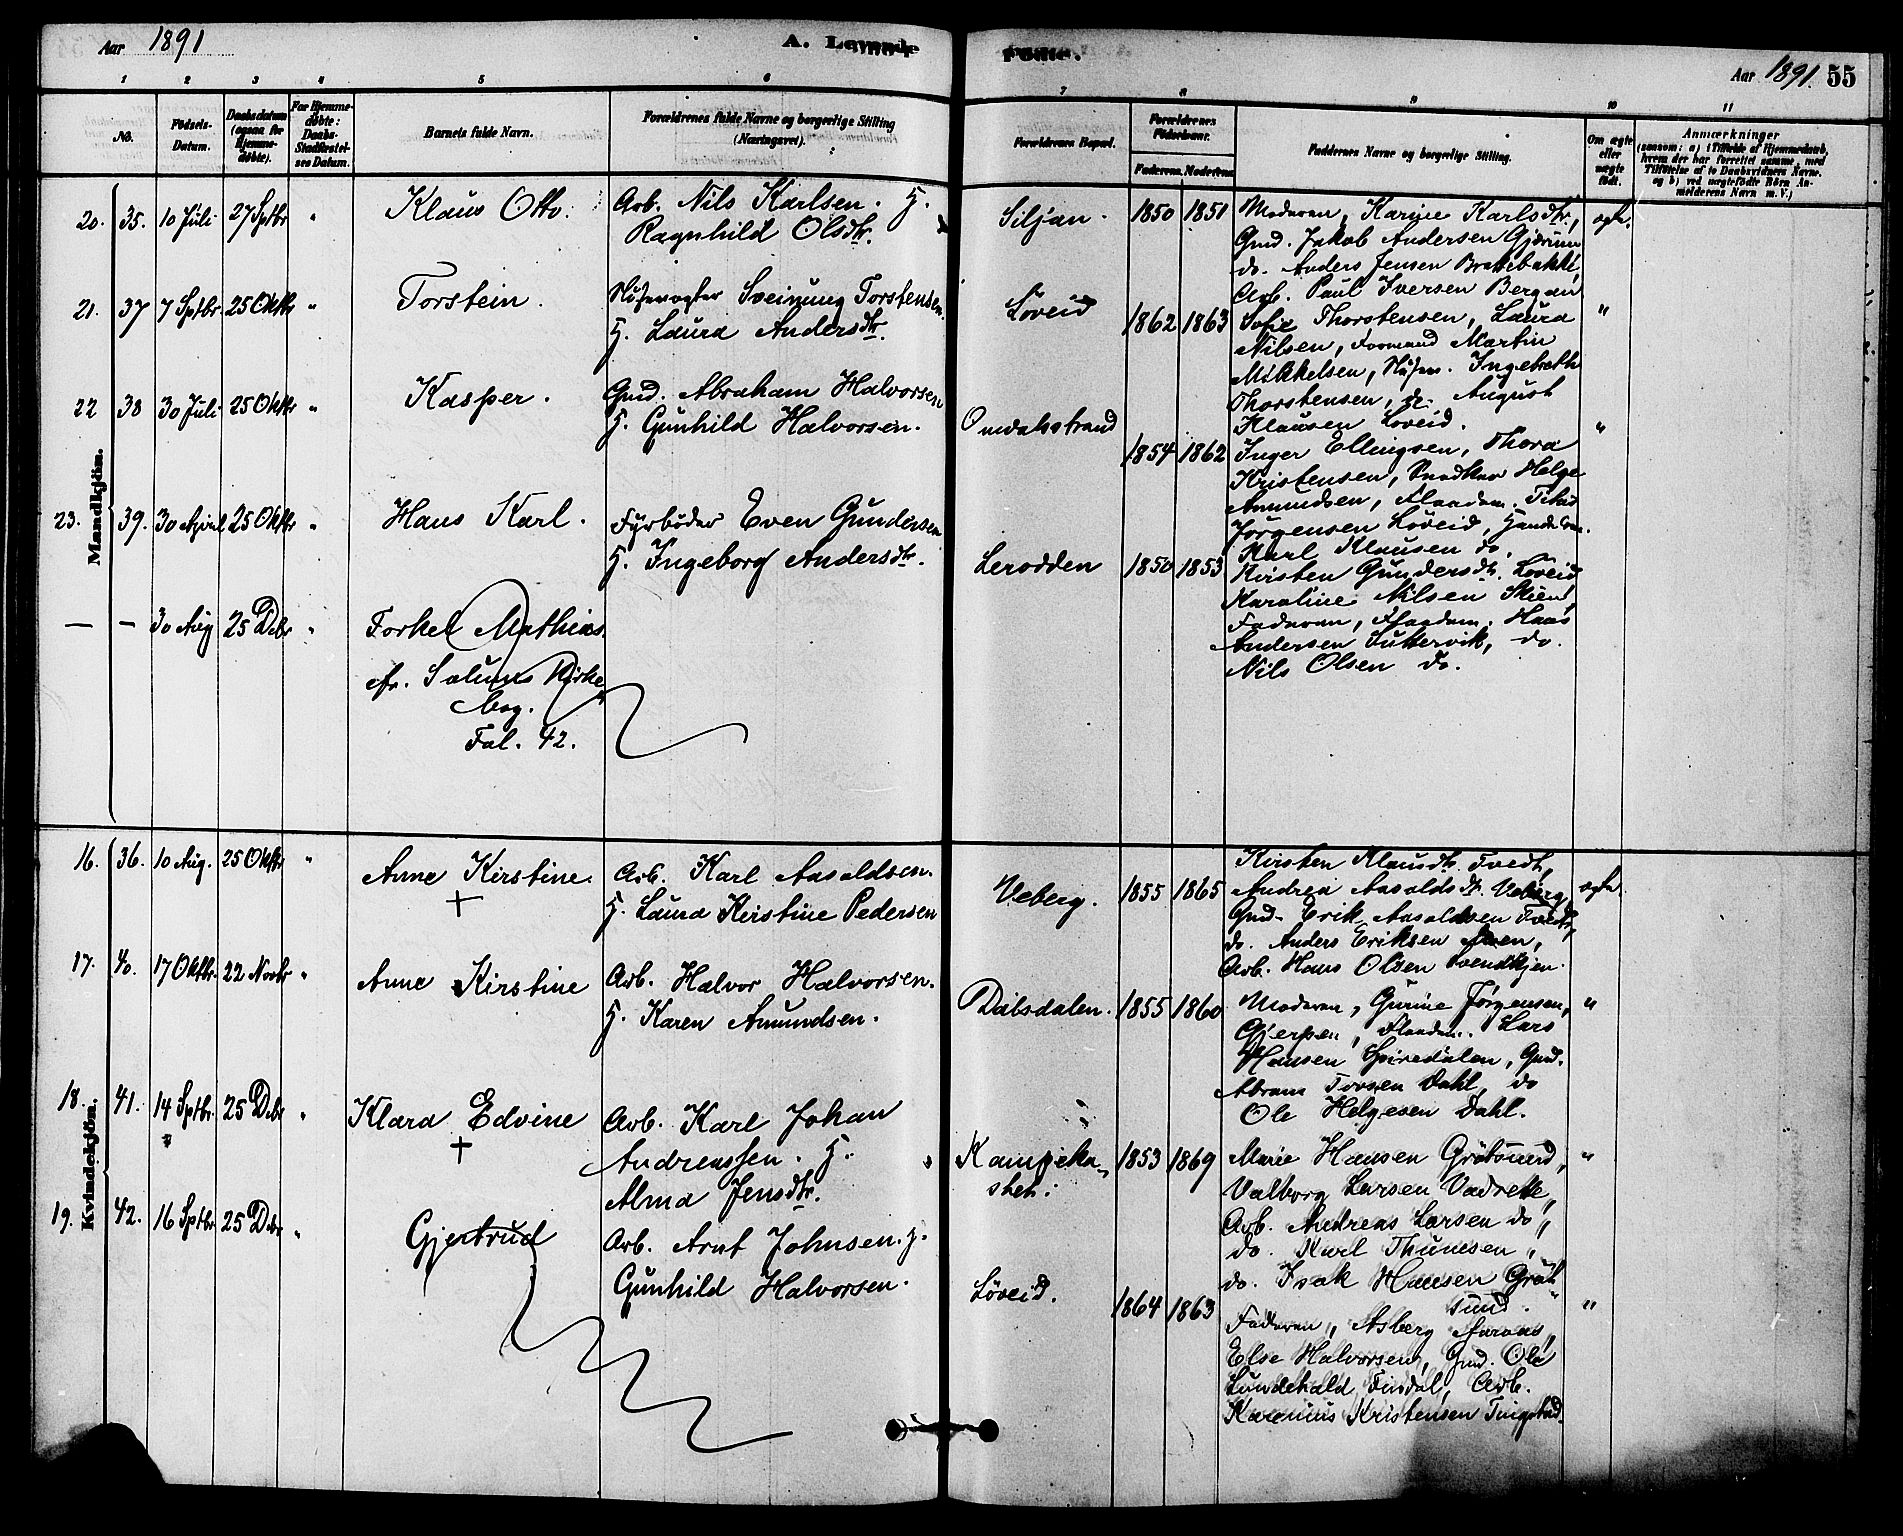 Aar 1891
A. Levende
Fødte.
Aar 1891.
55
1 2 3 4 5 6
7 8 9 10 11
No.
Fødsels-
Datum.
Daabsdatum
(ogsaa for
Hjemme-
døbte).
For Hjemme-
døbte:
Daabs-
Stadfæstel-
ses Datum.
Barnets fulde Navn.
Forældrenes fulde Navne og borgerlige Stilling
(Næringsvei).
Forældrenes Bopæl.
Forældrenes
Fødselsaar.
Faderens. Moderens.
Faddernes Navne og borgerlige Stilling.
Om ægte
eller
uægte
født.
Anmærkninger
(saasom: a) i Tilfælde af Hjemmedaab,
hvem der har forrettet samme, med
Tilføielse af to Daabsvidners Navne.
og b) ved uægtefødte Børn An-
melderens Navn m. V.)
Mandkjön.
20. 35. 10 Juli 27 Sptbr "
Klaus Otto.
Arb. Nils Karlsen. H.
Ragnhild Olsdtr.
Siljan. 1850 1851
Moderen, Karine Karlsdtr,
Gmd. Jakob Andersen Gjærum
do. Anders Jensen Brattebakke,
Arb. Paul Iversen Bergan
ægte.
21. 37 7 Sptbr 25 Oktbr "
Torstein.
Slusevogter Sveinung Torstensen.
H. Laura Andersdtr.
Løveid 1862 1863
Sofie Thorstensen, Laura
Nilsen, Formand Martin
Mikkelsen, Slusev. Ingebreth
Thorstensen, do. August
Klausen Løveid.
"
22 38 30 Juli 25 Oktbr "
Kasper.
Gmd. Abraham Halvorsen
H. Gunhild Halvorsen.
Omdalsstrand 1854 1862
Inger Ellingsen, Thora
Kristensen, Snedker Helge
Amundsen, Flaadm.
Jørgensen Løveid,
Karl Klausen do.
"
23. 39. 30 April 25 Oktbr "
Hans Karl.
Fyrbøder Even Gundersen
H. Ingeborg Andersdtr.
Lerodden 1850 1853
Kirsten Gundersdtr. Løveid
Karoline Nilsen Skien,
Faderen, Flaadm. Hans
Andersen Futtervik, do.
Nils Olsen do.
— — 30 Aug 25 Debr "
Torkel Mathias
cfr. Solums Kirke
bog.
Fol. 42.
Kvindekjön.
16. 36. 10 Aug. 25 Oktbr "
Anne Kirstine.
+
Arb. Karl Aasoldsen.
H. Laura Kirstine Pedersen
Veberg. 1855 1865
Kirsten Klausdtr. Tvedt,
Andrea Aasoldsdtr. Veberg,
Gmd. Erik Aasoldsen Tvedt,
do. Anders Eriksen Aaen,
Arb. Hans Olsen Svendkjen.
ægte.
17. 40. 17 Oktbr. 22 Novbr "
Anne Kirstine
Arb. Halvor Halvorsen.
H. Karen Amundsen.
Dalsdalen. 1855 1860
Moderen, Gurine Jørgensen,
Gjerpen, Flaadm. Lars
Hansen Spiredalen, Gmd.
Abram Torsen Dahl, do
Ole Helgesen Dahl.
"
18. 41. 14 Sptbr. 25 Debr "
Klara Edvine
+
Arb. Karl Johan
Andreassen. H.
Alma Jensdtr.
Kampeka-
sket. 1853 1869
Marie Hansen Grøtsund,
Valborg Larsen Vadrette,
Arb. Andreas Larsen do,,
do. Karl Thunesen "
do. Isak Hansen Grøt
sund.
"
19. 42. 16 Sptbr. 25 Debr "
Gjertrud
Arb. Arnt Johnsen. H.
Gunhild Halvorsen.
Løveid. 1864 1863
Faderen, Asberg Aaraas,
Else Halvorsen, Gmd. Ole
Lundehald, Findal, Arb.
Karenius Kristensen Tingstad.
"